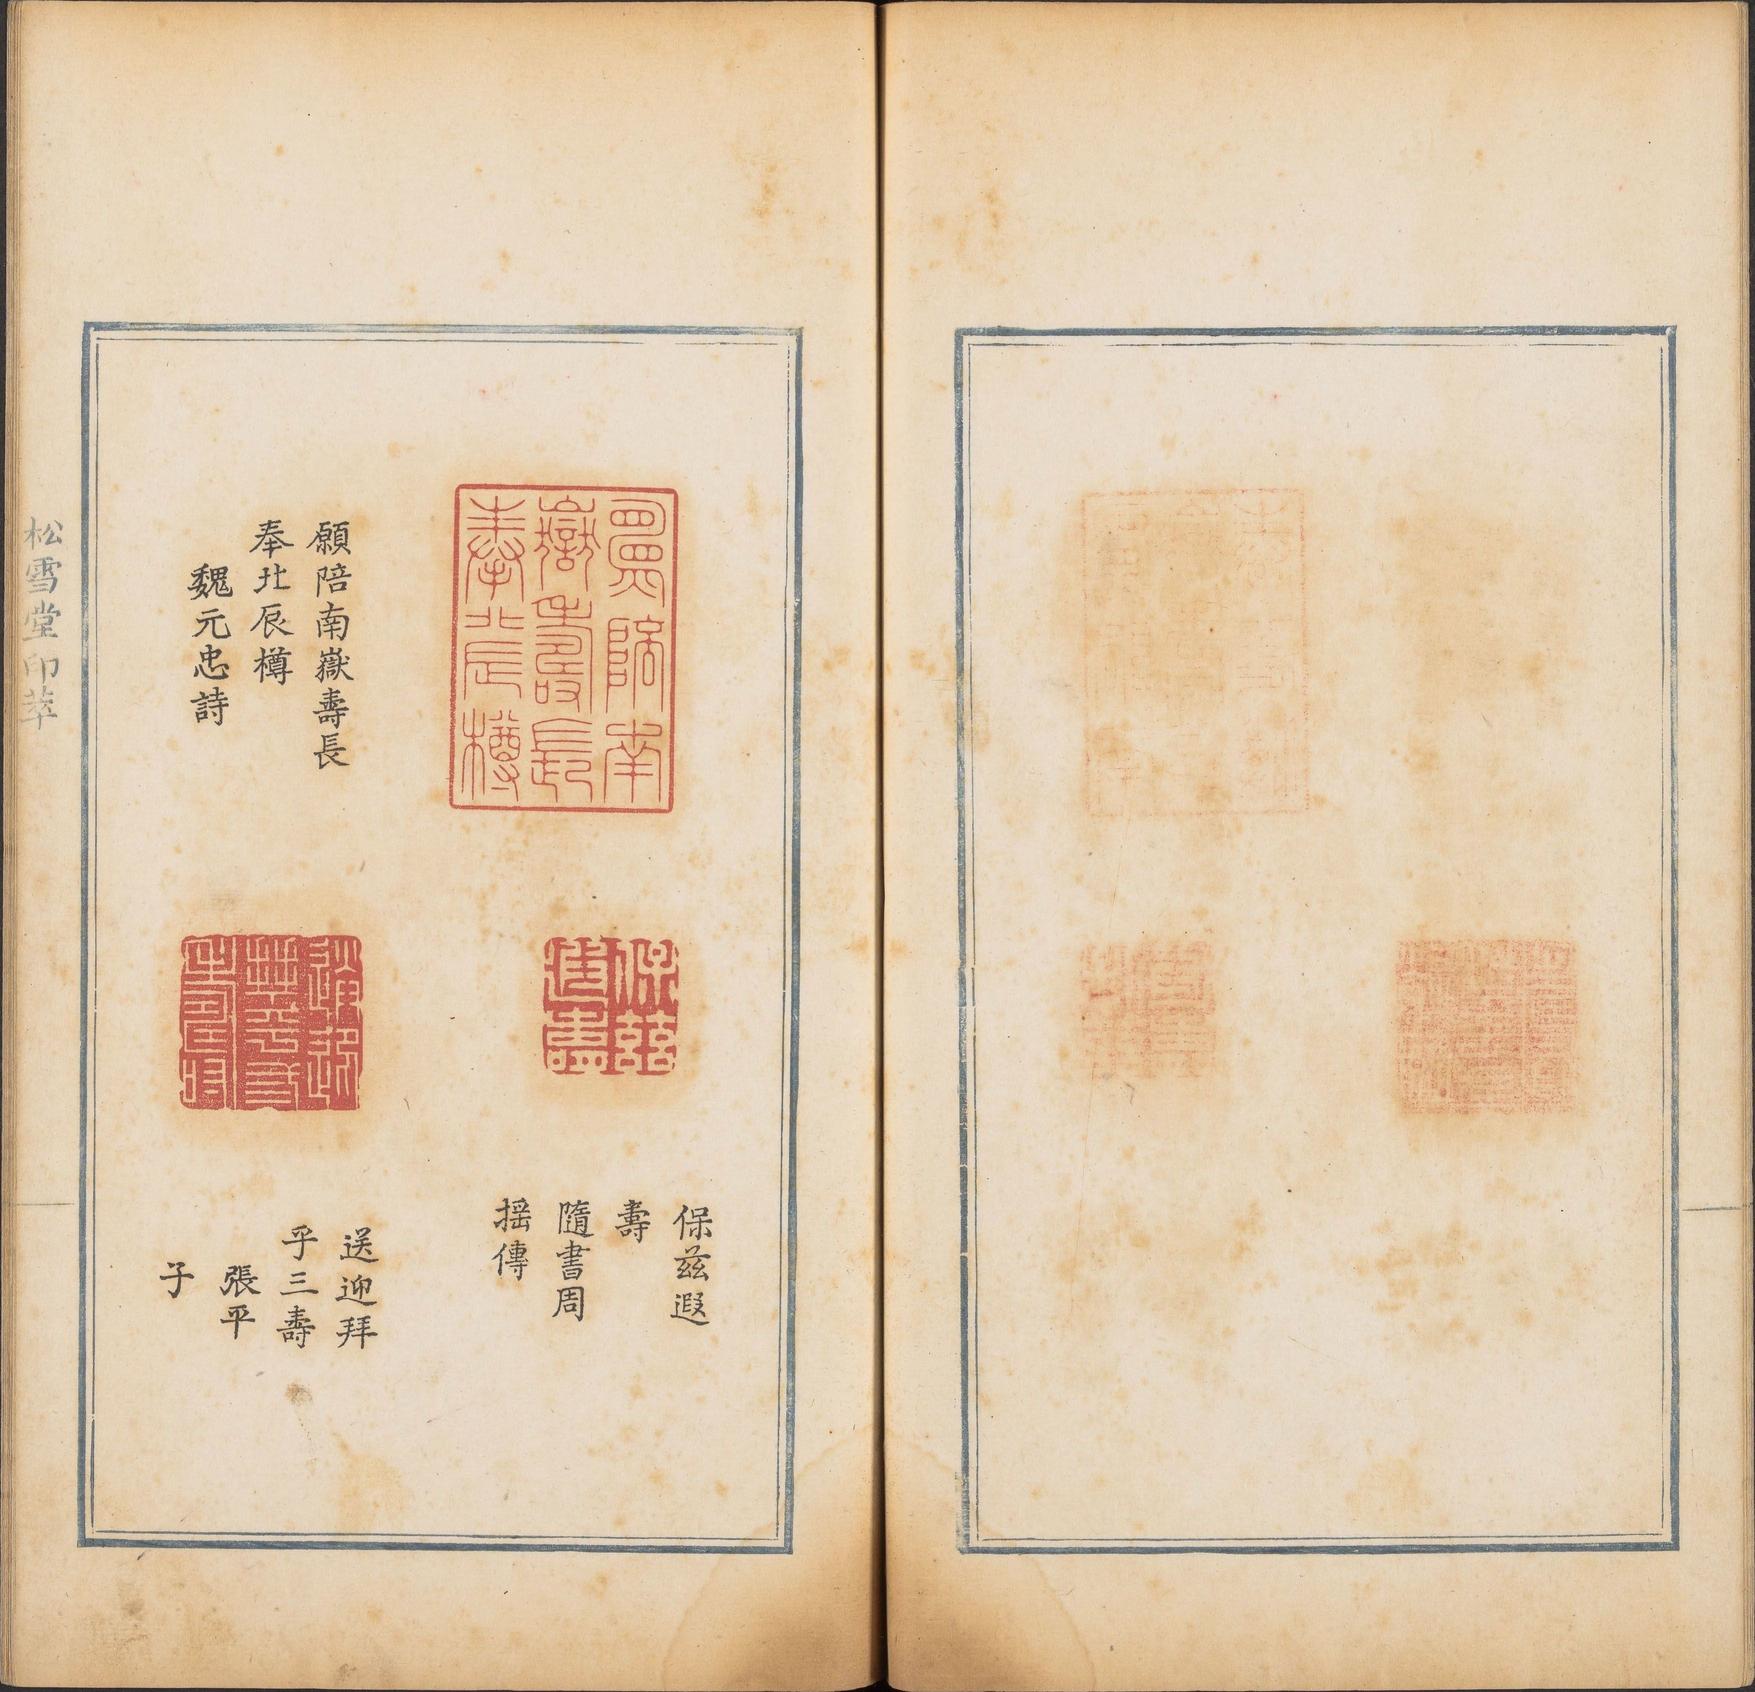 願陪南
嶽壽長
奉北辰樽
願陪南嶽壽長
奉北辰樽
魏元忠詩
保兹
遐壽
保兹遐
壽
隨書周
揺傳
送迎拜
乎三壽
張平
子
松雪堂印萃